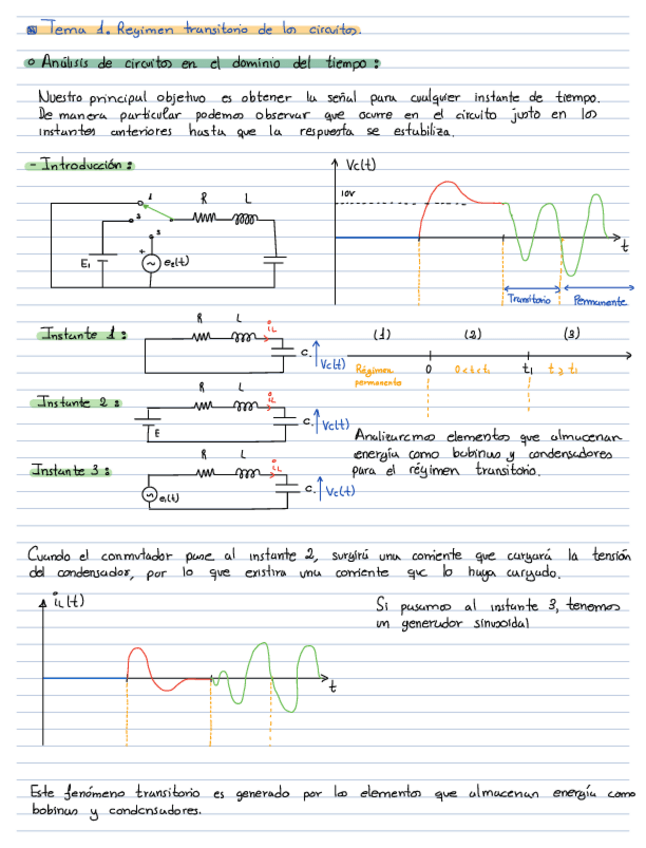 Tema 1. Regimen transitorio de los circuitos.
Análisis de circuitos en el dominio del tiempo:
Nuestro principal objetivo es obtener la señal para cualquier instante de tiempo.
De manera particular podemos observar que ocurre en el circuito justo en los
instantes anteriores hasta que la respuesta se estabiliza.
- Introducción:
Vc(t)
10V
t
Transitorio
Permanente
1
2
3
R
L
E1
+
e2(t)
Instante 1:
R
L
iL
C
Vc(t)
(1)
(2)
(3)
Régimen
permanente
0
0<t<t1
t1
t≥t1
Instante 2:
R
L
iL
E
C
Vc(t)
Analizaremos elementos que almacenan
energía como bobinas y condensadores
para el régimen transitorio.
Instante 3:
R
L
iL
e(t)
C
Vc(t)
Cuando el conmutador pase al instante 2, surgirá una corriente que cargará la tensión
del condensador, por lo que existira una corriente que lo haya cargado.
iL(t)
t
Si pasamos al instante 3, tenemos
un generador sinusoidal
Este fenómeno transitorio es generado por los elementos que almacenan energía como
bobinas y condensadores.